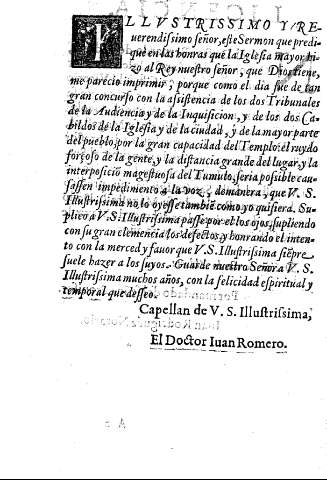 ILLVSTRISSIMO Y RE-
uerendissimo señor, este Sermon que predi
què en las honras que la Iglesia mayor hi-
zo al Rey nuestro señor, que Dios tiene,
me parecio imprimir; porque como el dia fue de tan
gran concurso con la assistencia de los dos Tribunales
de la Audiencia y de la Inquisicion, y de los dos Ca-
bildos de la Iglesia y de la ciudad, y de la mayor parte
del pueblo, por la gran capacidad del Templo: el ruydo
forçoso de la gente, y la distancia grande del lugar, y la
interposiciõ magestuosa del Tumulo, seria posible cau-
sassen impedimento a la voz, demanera, que V. S.
Illustrissima no lo oyesse tambiẽ como yo quisiera. Su-
plico a V. S. Illustrissima passe por el los ojos, supliendo
con su gran clemencia los defectos, y honrando el inten-
to con la merced y fauor que V. S. Illustrissima siẽpre
suele hazer a los suyos. Guarde nuestro Señor a V. S.
Illustrissima muchos años, con la felicidad espiritual y
temporal que desseo.
Capellan de V. S. Illustrissima,
El Doctor Iuan Romero.